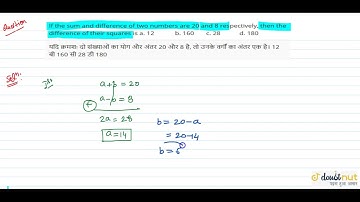 Question
If the sum and difference of two numbers are 20 and 8 respectively, then the
difference of their squares is a. 12 b. 160 c. 28 d. 180
यदि क्रमशः दो संख्याओं का योग और अंतर 20 और 8 है, तो उनके वर्गों का अंतर एक है। 12
बी 160 सी 28 डी 180
a+b = 20
a-b = 8
2a = 28
a=14
b = 20-a
= 20-14
b = 6
doubtnut